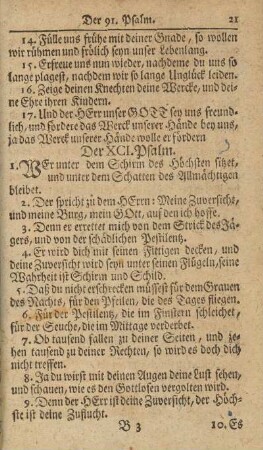 Der 91. Psalm. 21
14. Fülle uns frühe mit deiner Gnade, so wollen
wir rühmen und frölich seyn unser Lebenlang.
15. Erfreue uns nun wieder, nachdeme du uns so
lange plagest, nachdem wir so lange Unglück leiden.
16. Zeige deinen Knechten deine Wercke, und dei-
ne Ehre ihren Kindern.
17. Und der HErr unser GOTT sey uns freund-
lich, und fordere das Werck unserer Hände bey uns,
ja das Werck unserer Hände wolle er fordern
Der XCI. Psalm.
1. WEr unter dem Schirm des Höchsten sitzet,
und unter dem Schatten des Allmächtigen
bleibet.
2. Der spricht zu dem HErrn: Meine Zuversicht,
und meine Burg, mein GOtt, auf den ich hoffe.
3. Denn er errettet mich von dem Strick des Jä-
gers, und von der schädlichen Pestilentz.
4. Er wird dich mit seinen Fittigen decken, und
deine Zuversicht wird seyn unter seinen Flügeln, seine
Wahrheit ist Schirm und Schild.
5. Daß du nicht erschrecken müssest für dem Grauen
des Nachts, für den Pfeilen, die des Tages fliegen.
6. Für der Pestilentz, die im Finstern schleichet,
für der Seuche, die im Mittage verderbet.
7. Ob tausend fallen zu deiner Seiten, und ze-
hen tausend zu deiner Rechten, so wird es doch dich
nicht treffen.
8. Ja du wirst mit deinen Augen deine Lust sehen,
und schauen, wie es den Gottlosen vergolten wird.
9. Denn der HErr ist deine Zuversicht, der Höch-
ste ist deine Zuflucht.
B 3 10. Es